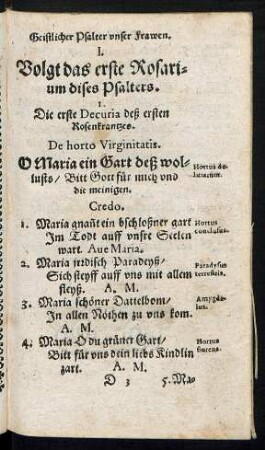 Geistlicher Psalter vnser Frawen.
I.
Volgt das erste Rosari-
um dises Psalters.
1.
Die erste Decuria deß ersten
Rosenkrantzes.
De horto Virginitatis.
O Maria ein Gart deß wol-
lusts/ Bitt Gott für mich vnd
die meinigen.
Hortus de-
liciarum.
Credo.
1. Maria gnañt ein bschloßner gart
Im Todt auff vnsre Seelen
wart. Aue Maria.
Hortus
conclusus.
2. Maria jrdisch Paradeyß/
Sich steyff auff vns mit allem
fleyß. A. M.
Paradysus
terrestris.
3. Maria schöner Dattelbom/
In allen Nöthen zu vns kom.
A. M.
4. Maria O du grüner Gart/
Bitt für vns dein liebs Kindlin
zart. A. M.
Hortus
D 3 5. Ma-